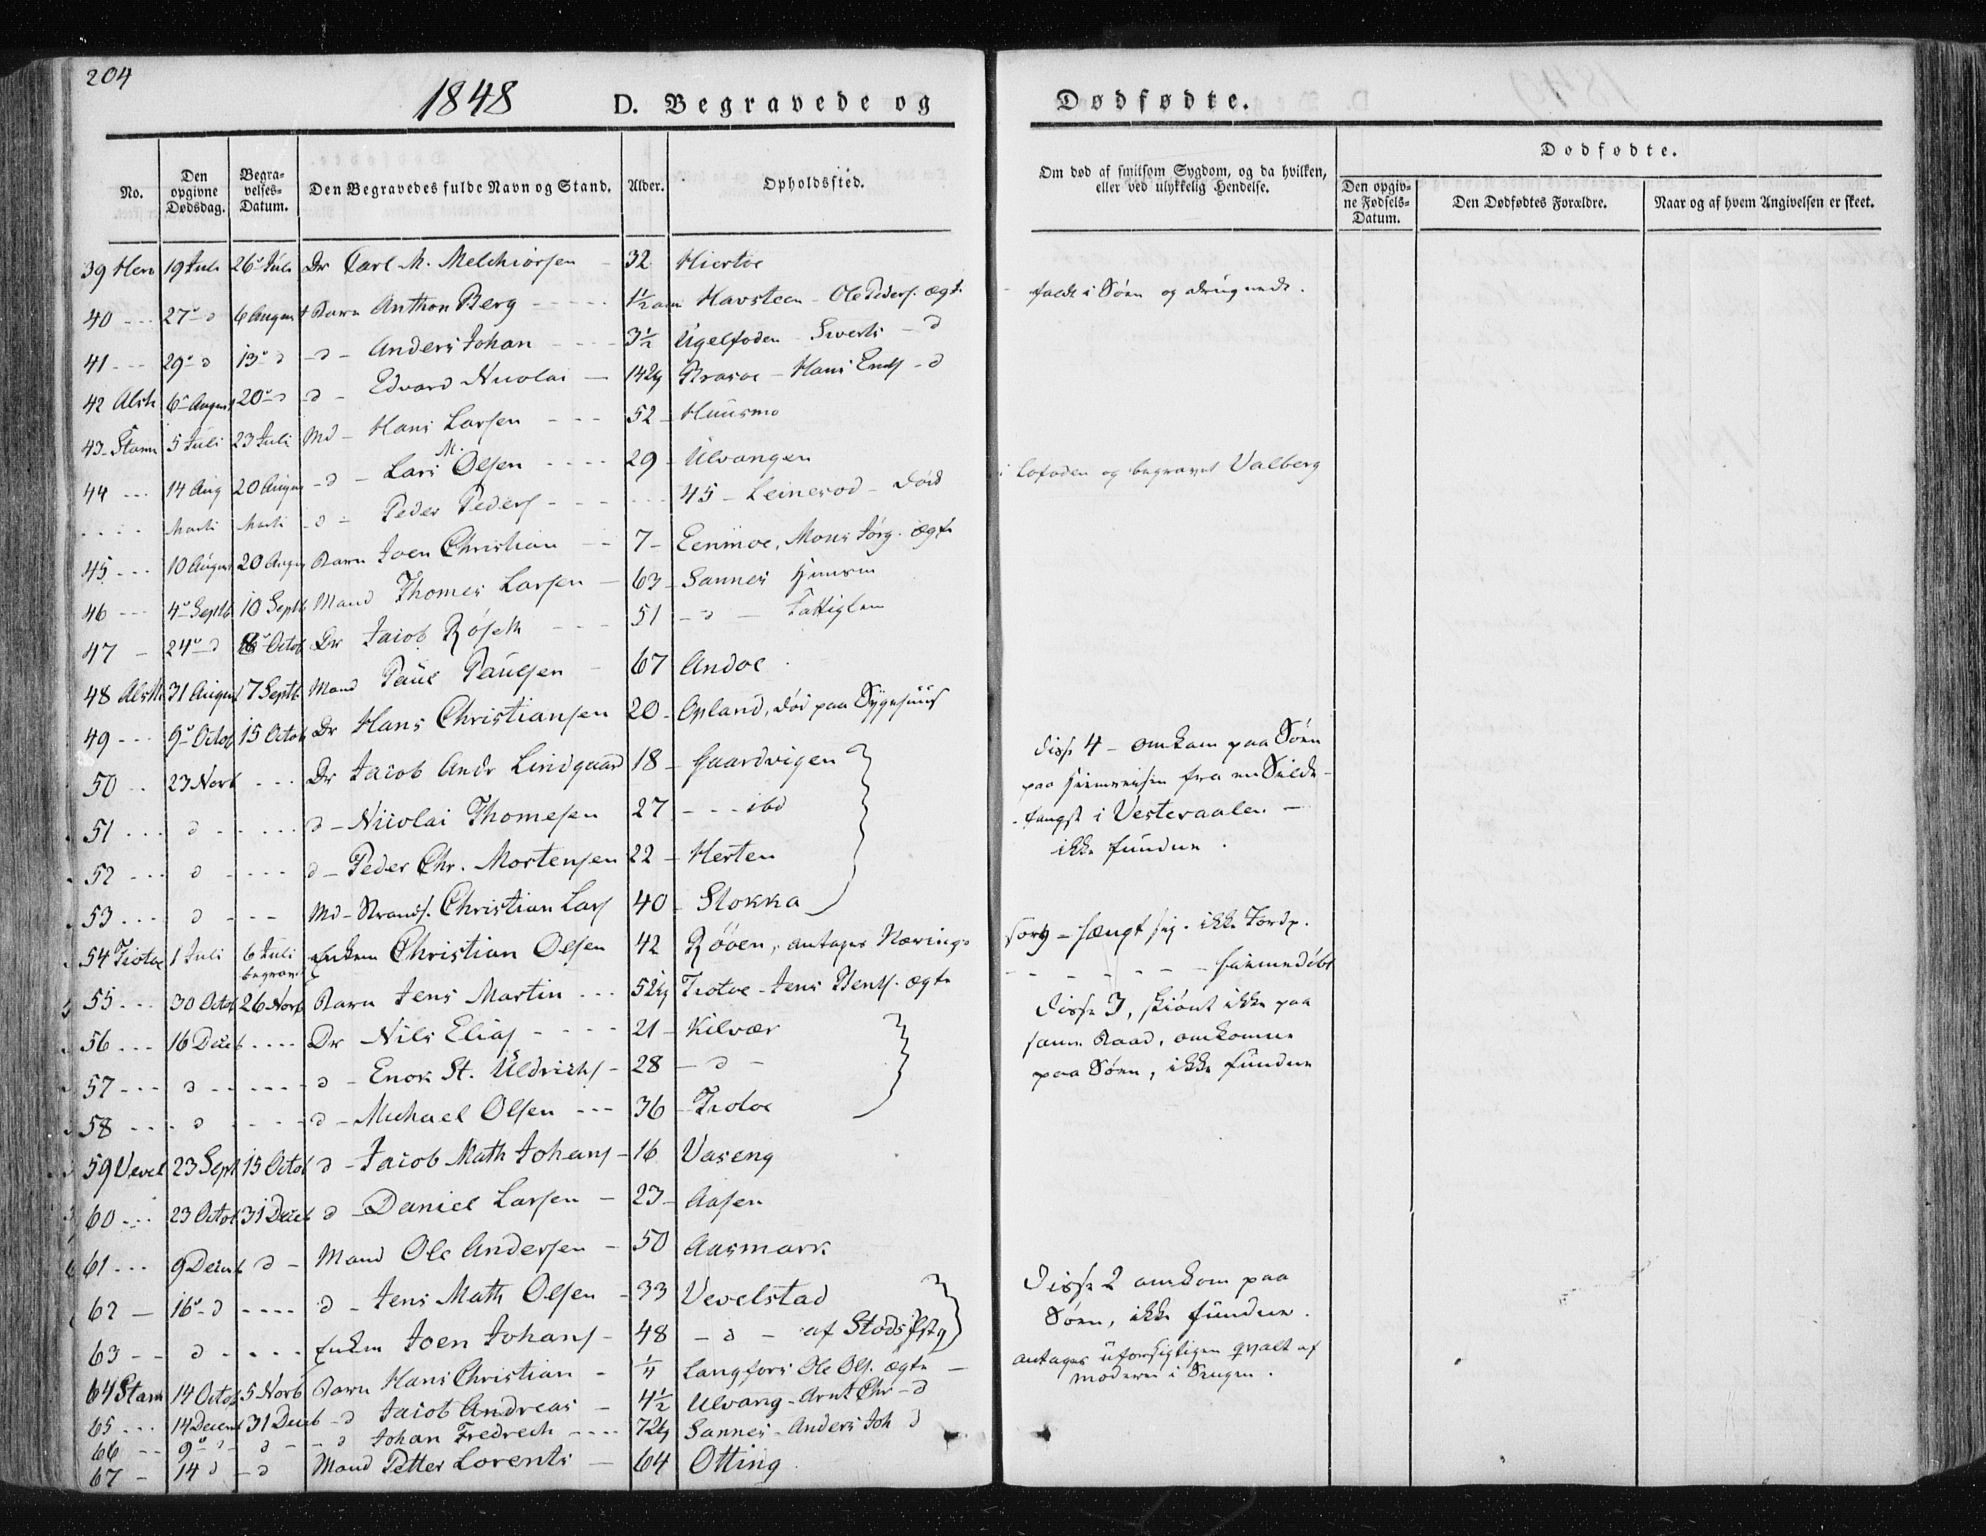 204
1848 D. Begravede og Dødfødte.
No. Den opgivne Dødsdag. Begravelses-Datum. Den Begravedes fulde Navn og Stand. Alder. Opholdssted. Om død af smitsom Sygdom, og da hvilken, eller ved ulykkelig Hendelse. Dødfødte. Den opgivne Fødsels-Datum. Den Dødfødtes Forældre. Naar og af hvem Angivelsen er skeet.
39 Herø 19 Juli 26 Juli Dr Carl M. Melchiorsen 32 Hiertøe
40 --- 27 d 6 August Barn Anthon Berg ---- 1½ aar Havsteen - Ole Peders. ægte faldt i Søen og druknede.
41 --- 29 d 13 d - d - Anders Johan ---- 3½ Ugelfoden - Siverts - d
42 Alsth 6 August 20 d d - Edvard Nicolai - 14 Hans - d
43 - Stamn 5 Juli 23 Juli Md - Hans Larsen --- 52 - Huusmo
44 --- 14 Aug 20 August - d - Lars M. Olsen ---- 29 - Ulvangen
---- Marti Marti - d - Peder Peders --- --- 45 - Leinesod - død i Lofoden og begravet Valberg
45 --- 10 August 20 August Barn Joen Christian -- 7 - Eenmoe, Mons Jørg. ægte
46 --- 4 Septb 10 Septb Mand Thomes Larsen - 63 - Sannes
47 - 24 d 8 Octob Dr Jacob Røseth --- 51 - d - Fattiglem
48 Alsth 31 August 17 Septb Mand Paul Paulsen - 67 Andøe
49 --- 9 Octob 15 Octob Dr Hans Christiansen 20 - Opland, død paa Sygehuus
50 -- 23 Novb --- Dr Jacob Andr Lindgaard 18 - Gaardvigen disse 4 - omkom paa Søen
51 --- d ----- d - Nicolai Thomesen 27 --- ibd paa Hiemreisen fra en Silde-
52 --- d ---- d - Peder Chr. Mortensen 22 - Herten fangst i Vesteraalen - ikke fundne.
53 --- d --- Md - Christian Lars 40 - Stokka
54 Tiøtøe 1 Juli 6 Juli begravet Enkem Christian Olsen 42 Røøen, antages Nærings-sorg - hængt sig. ikke Jordp.
55 --- 30 Octob 26 Novb Barn Jens Martin --- Tiøtøe - Jens Bents. ægte ------ hiemmedøbt
56 --- 16 Decb ---- Dr Nils Elias ---- 21 - Kilvær disse 3, skiønt ikke paa
57 --- d ------ d - Enok St. Uldrichs - 28 - d - samme Baad, omkomne
58 --- d ---- d - Michael Olsen --- 36 - Tiøtøe paa Søen, ikke fundne
59 Vevel 23 Sept 15 Octob d - Jacob Math Johans - 16 Vaseng
60 --- 23 Octob 31 Decb d - Daniel Larsen - 23 - Aasen
61 --- 9 Decemb d - Mand Ole Andersen - 50 Aasmark
62 - 16 d ---- d - Jens Math Olsen - 33 Vevelstad Disse 2 omkom paa
63 -- d ---- Enkm Joen Johans - 48 - d - af Stods Pstg Søen, ikke fundne.
64 Stam 14 Octob 5 Novb Barn Hans Christian - ¼ Langfors Ole Ols. ægte - antages uforsigtigen qvalt af Moderen i Sengen.
65 --- 14 Decemb 31 Decb - d Jacob Andreas - 4½ Ulvang - Arnt Chr - d
66 -- 9 d - d - - d Johan Fredrech ---- Sannes - Anders Joh d
67 - 14 d - d Mand Petter Lorents - 64 Otting